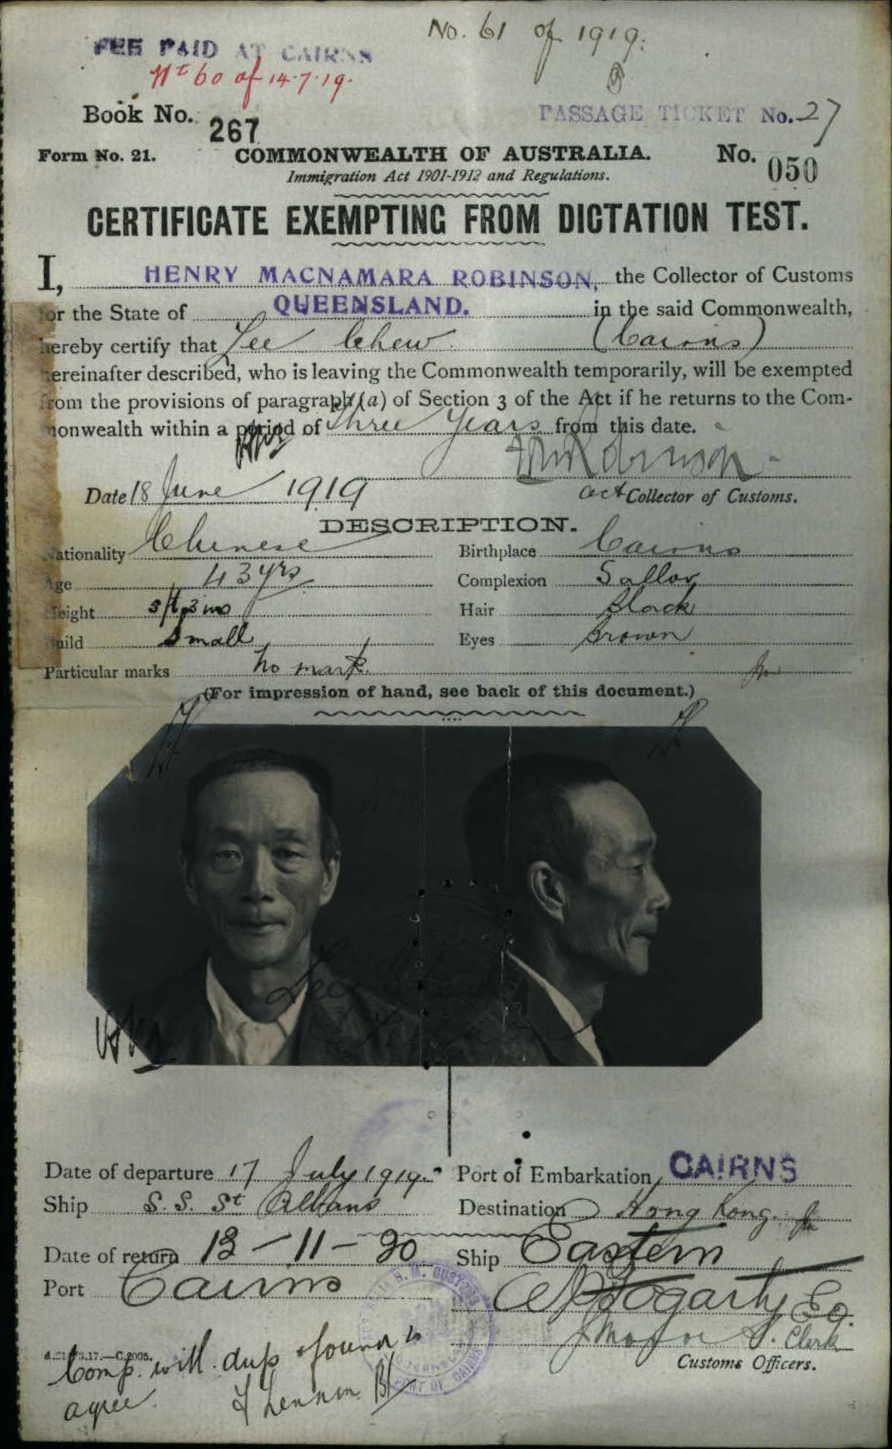 No. 61 of 1919.
FEE PAID AT CAIRNS
No 60 of 14.7.19.
Book No. 267
PASSAGE TICKET No. 27
Form No. 21. COMMONWEALTH OF AUSTRALIA. No. 050
Immigration Act 1901-1912 and Regulations.
CERTIFICATE EXEMPTING FROM DICTATION TEST.
I, HENRY MACNAMARA ROBINSON, the Collector of Customs
for the State of QUEENSLAND. in the said Commonwealth,
hereby certify that Lee Chew (Cairns)
hereinafter described, who is leaving the Commonwealth temporarily, will be exempted
from the provisions of paragraph (a) of Section 3 of the Act if he returns to the Com-
monwealth within a period of three years from this date.
Date 18 June 1919
Act Collector of Customs.
DESCRIPTION.
Nationality Chinese Birthplace Cairns
Age 43 yrs Complexion Sallow
Height 5ft 3ins Hair Black
Build Small Eyes Brown
Particular marks no mark.
(For impression of hand, see back of this document.)
Lee Chew
Date of departure 17 July 1919. Port of Embarkation CAIRNS
Ship S.S. St Albans Destination Hong Kong.
Date of return 13-11-20 Ship Eastern
Port Cairns Fogarty
Clerk
Customs Officers.
Comp. with dups & found to
agree.